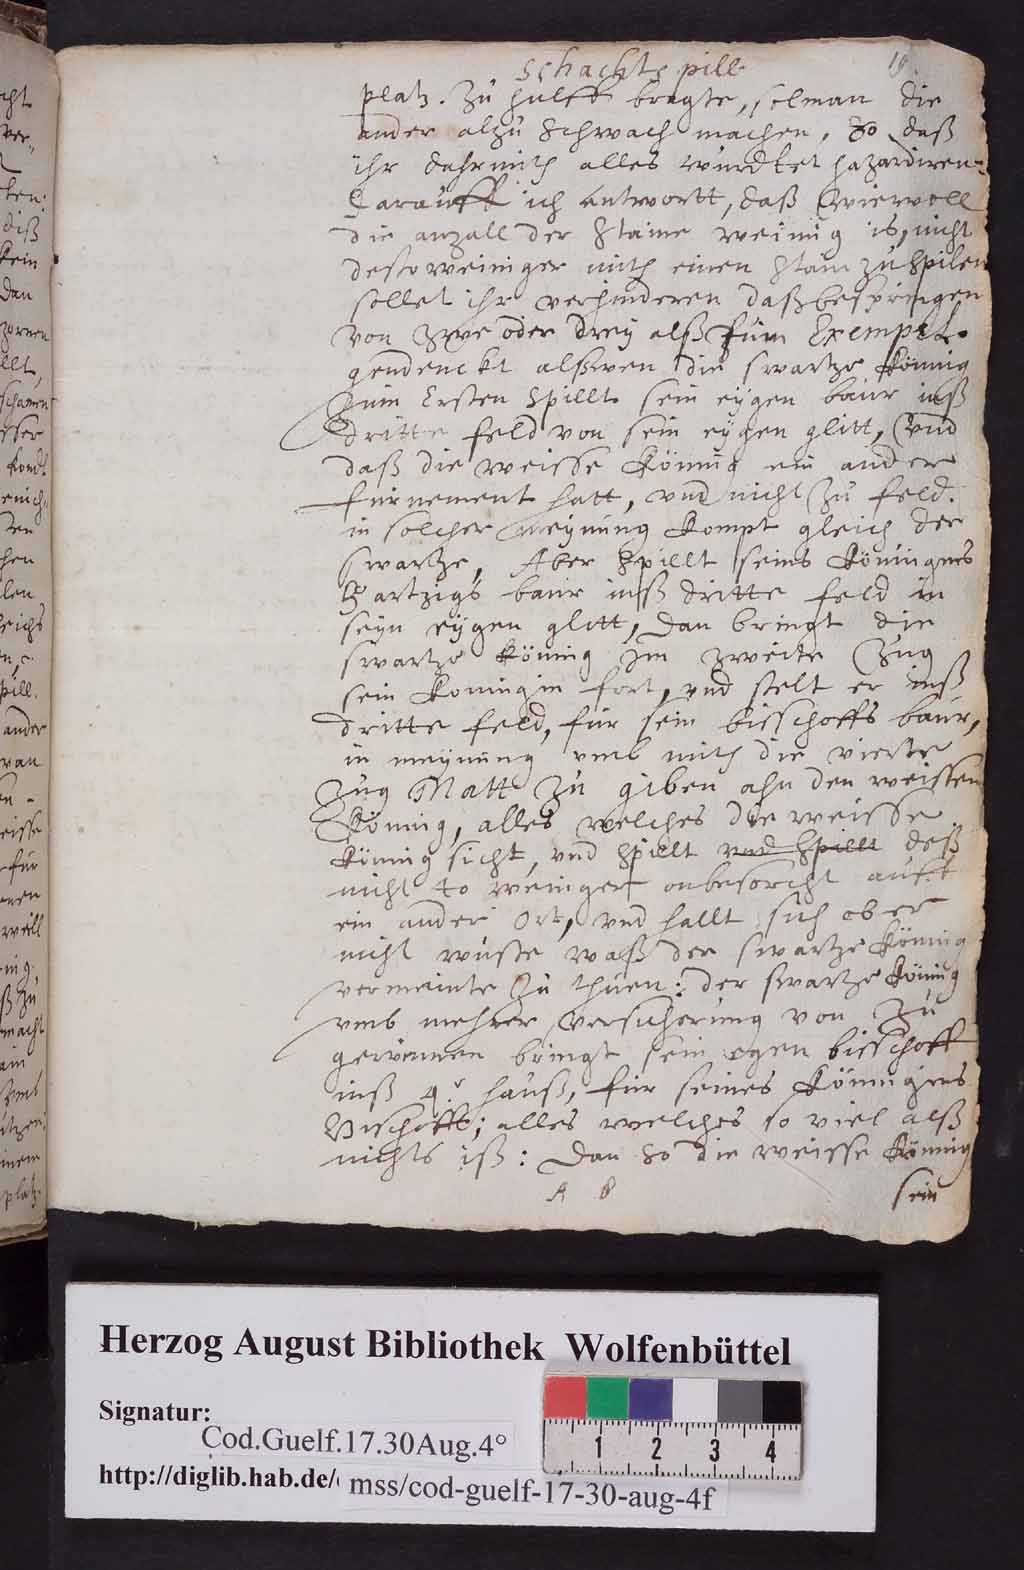 Schachts pill 19
platz. Zu hulff bragte, solman die
ander alzu Schwach machen, So daß
ihr dahrmith alles wurdtet hazardiren:
Darauff ich Antwortt, daß wiewoll
die anzall der Staine weinig is, nicht
destoweiniger mith einen Stain zu Spilen
sollet ihr verhinderen daß bespringen
von zwe oder drey alß zum Exempel.
gendenckt alßwen die swartze Könnig
Zum Ersten Spillt sein eygen baur inß
dritte feld von sein eygen glitt, Vnd
daß die weisse Könnig ein ander
fürnement hatt, vnd nicht zu feld.
in solcher meynung kompt gleich der
swartze, Aber Spillt seins Könnignes
Hartzigs baur inß dritte feld in
seyn eygen glitt, dan bringt die
swartze Könnig Im zweite Zug
sein Konnigin fort, vnd stelt er inß
dritte feld, für sein bisschoffs baur,
in meynung vmb mith die vierte
Zug Matt zu giben ahn den weissen
Könnig, alles welches die weisse
Könnig sicht, vnd spillt vnd Spillt deß
nicht to weiniger onbesorcht auff
ein ander Ort, vnd hallt sich ob er
nicht wuste waß der swartze Könnig
vermeinte zu thuen: der swartze Könnig
vmb mehrer Versicherung von zu
gewinnen bringt sein egen bisschoff
inß 4. hauß, für seines Könnigens
Bischoff; alles welches so viel alß
nichts iß: Dan So die weisse Könnig
A 8 sein
Herzog August Bibliothek Wolfenbüttel
Signatur:
Cod.Guelf.17.30Aug.4°
http://diglib.hab.de/
mss/cod-guelf-17-30-aug-4f
1 2 3 4